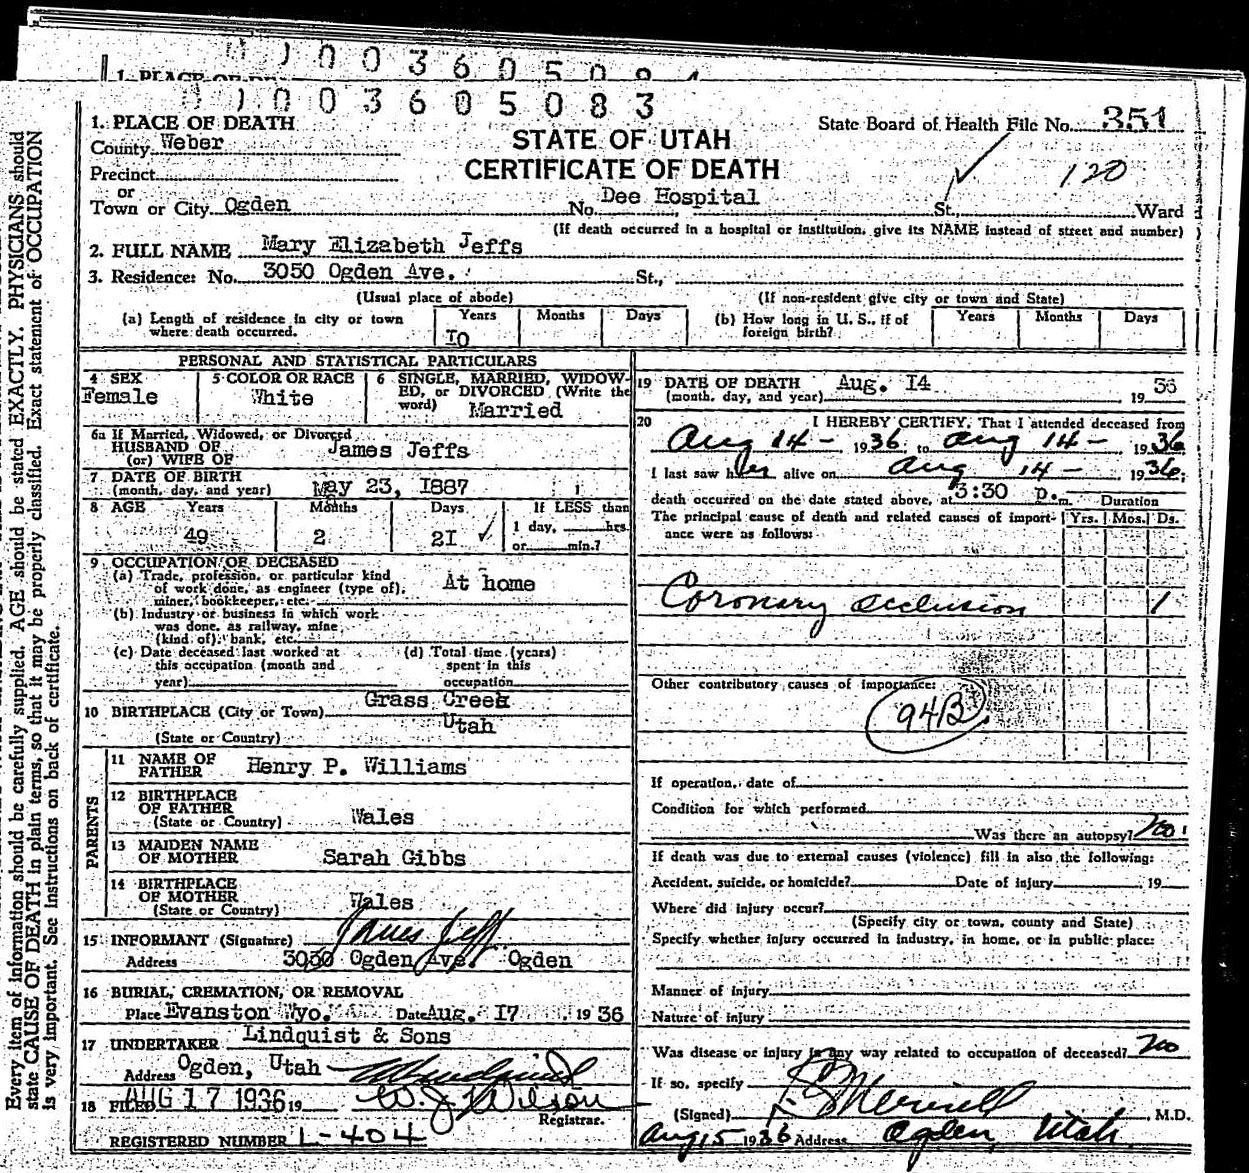 1. PLACE OF DE
003605083
1. PLACE OF DEATH
State Board of Health File No. 351
County Weber
STATE OF UTAH
CERTIFICATE OF DEATH
120
Precinct
or
Town or City Ogden No. Dee Hospital St., Ward
(If death occurred in a hospital or institution, give its NAME instead of street and number)
2. FULL NAME Mary Elizabeth Jeffs
3. Residence: No. 3050 Ogden Ave. St.,
(Usual place of abode) (If non-resident give city or town and State)
(a) Length of residence in city or town where death occurred. Years 10 Months Days
(b) How long in U. S., if of foreign birth? Years Months Days
PERSONAL AND STATISTICAL PARTICULARS
4 SEX Female
5 COLOR OR RACE White
6 SINGLE, MARRIED, WIDOWED, or DIVORCED (Write the word) Married
6a If Married, Widowed, or Divorced
HUSBAND OF
(or) WIFE OF James Jeffs
7 DATE OF BIRTH
(month, day, and year) May 23, 1887
8 AGE Years Months Days If LESS than
49 2 21 1 day, hrs.
or min.?
9 OCCUPATION OF DECEASED
(a) Trade, profession, or particular kind
of work done, as engineer (type of),
miner, bookkeeper, etc. At home
(b) Industry or business in which work
was done, as railway, mine
(kind of), bank, etc.
(c) Date deceased last worked at
this occupation (month and
year)
(d) Total time (years)
spent in this
occupation
10 BIRTHPLACE (City or Town) Grass Creek
(State or Country) Utah
PARENTS
11 NAME OF
FATHER Henry P. Williams
12 BIRTHPLACE
OF FATHER
(State or Country) Wales
13 MAIDEN NAME
OF MOTHER Sarah Gibbs
14 BIRTHPLACE
OF MOTHER
(State or Country) Wales
15 INFORMANT (Signature) James Jeffs
Address 3050 Ogden Ave. Ogden
16 BURIAL, CREMATION, OR REMOVAL
Place Evanston Wyo. Date Aug. 17 1936
17 UNDERTAKER Lindquist & Sons
Address Ogden, Utah
18 FILED AUG 17 1936 19 W. J. Wilson
Registrar.
REGISTERED NUMBER L-404
19 DATE OF DEATH Aug. 14
(month, day, and year) 19 36
20 I HEREBY CERTIFY, That I attended deceased from
Aug 14 - 1936 to Aug 14 - 1936
I last saw her alive on Aug 14 - 1936,
death occurred on the date stated above, at 3:30 p.m. Duration
The principal cause of death and related causes of importance were as follows: Yrs. Mos. Ds.
Coronary occlusion 1
Other contributory causes of importance:
94B
If operation, date of
Condition for which performed
Was there an autopsy? no
If death was due to external causes (violence) fill in also the following:
Accident, suicide, or homicide? Date of injury 19
Where did injury occur?
(Specify city or town, county and State)
Specify whether injury occurred in industry, in home, or in public place:
Manner of injury
Nature of injury
Was disease or injury in any way related to occupation of deceased? no
If so, specify
(Signed) Merrill M.D.
Aug 15 1936 Address Ogden, Utah
Every item of information should be carefully supplied. AGE should be stated EXACTLY. PHYSICIANS should
state CAUSE OF DEATH in plain terms, so that it may be properly classified. Exact statement of OCCUPATION
is very important. See instructions on back of certificate.